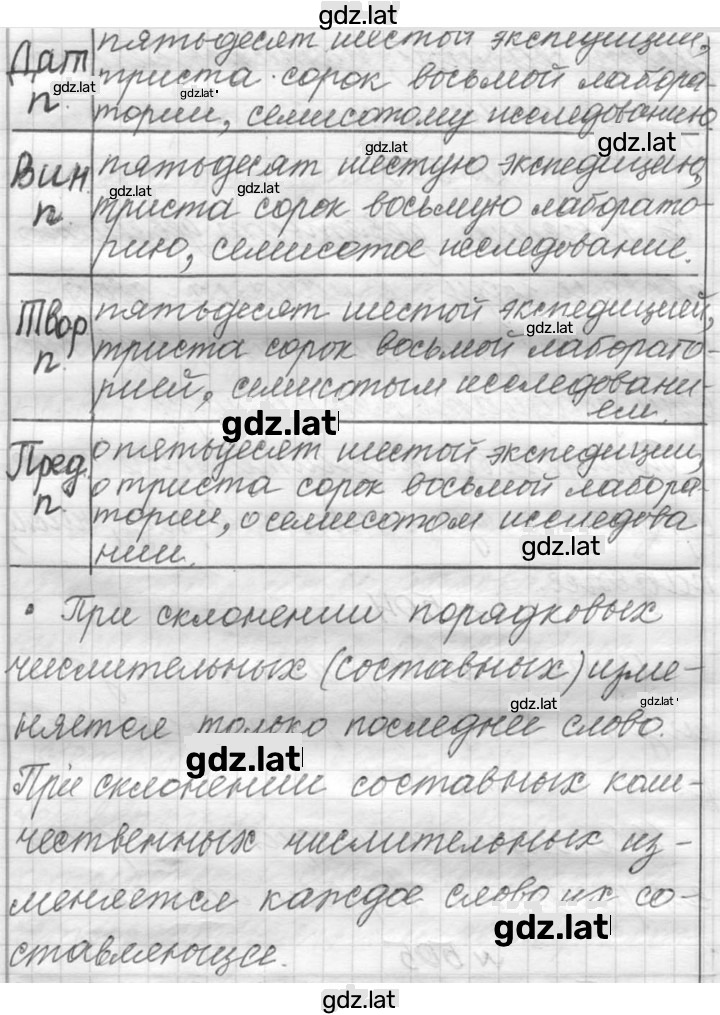 gdz.lat
Дат п. пятьдесят шестой экспедиции,
триста сорок восьмой лабора-
gdz.lat
gdz.lat
тории, семисотому исследованию
gdz.lat
Вин. п. пятьдесят шестую экспедицию,
gdz.lat
gdz.lat
gdz.lat
триста сорок восьмую лаборато-
рию, семисотое исследование.
Твор п. пятьдесят шестой экспедицией,
gdz.lat
триста сорок восьмой лаборато-
рией, семисотым исследовани-
ем.
gdz.lat
Пред. п. о пятьдесят шестой экспедиции,
о триста сорок восьмой лабора-
тории, о семисотом исследова
нии.
gdz.lat
• При склонении порядковых
числительных (составных) изме-
gdz.lat
gdz.lat
няется только последнее слово.
gdz.lat
При склонении составных коли-
чественных числительных из-
меняется каждое слово их со-
gdz.lat
ставляющее.
gdz.lat